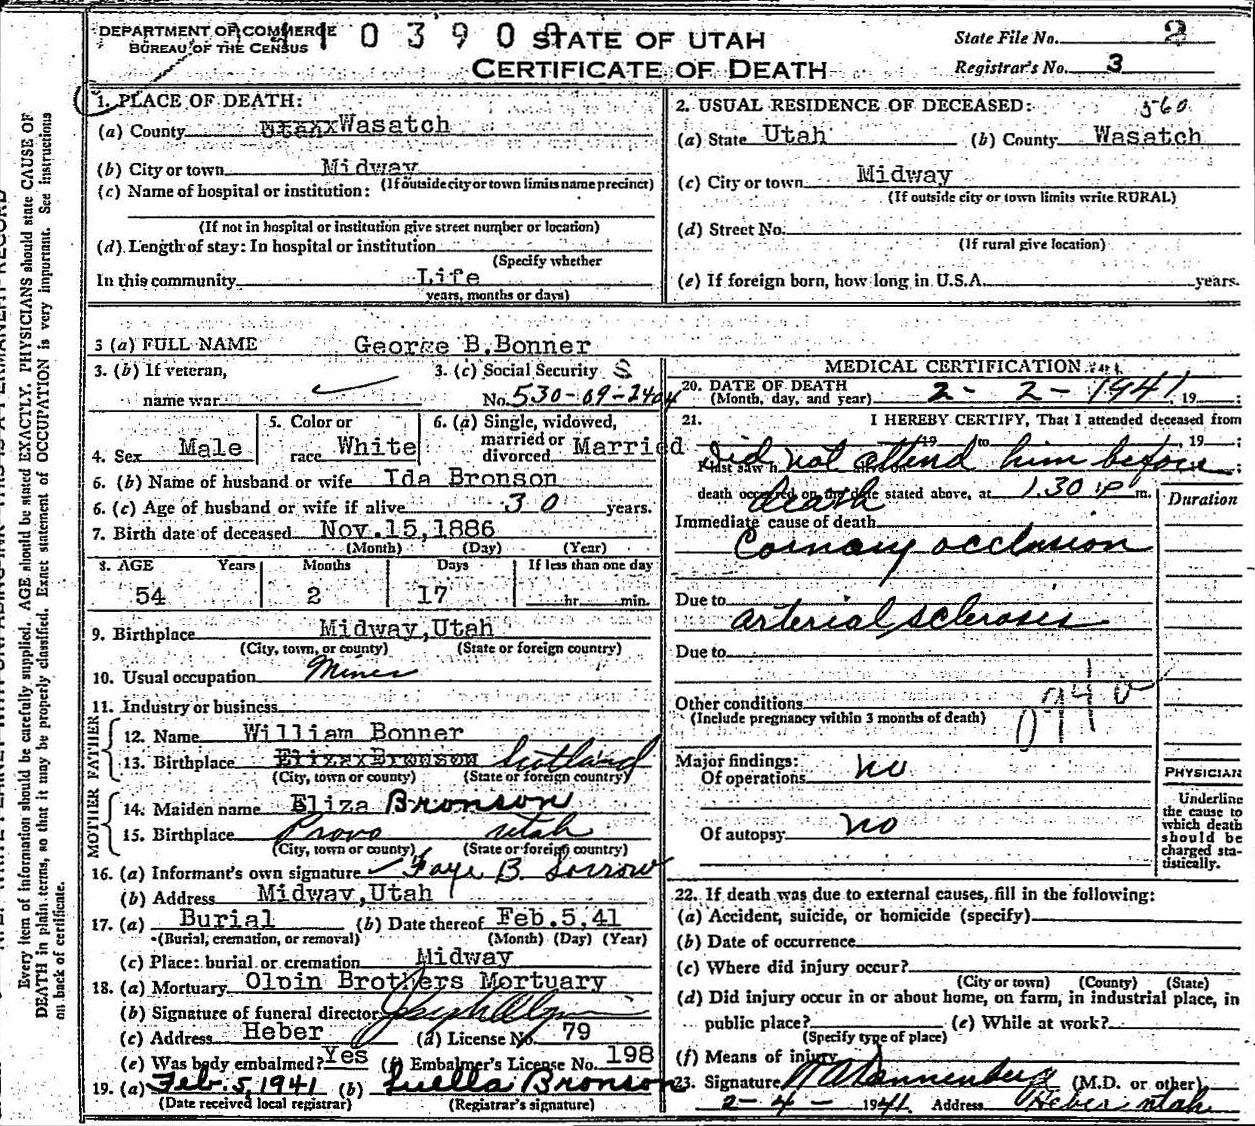 DEPARTMENT OF COMMERCE
BUREAU OF THE CENSUS
1 1 0 3 9 0 0
STATE OF UTAH
CERTIFICATE OF DEATH
State File No. 2
Registrar's No. 3
1. PLACE OF DEATH:
(a) County Utahx Wasatch
(b) City or town Midway
(If outside city or town limits name precinct)
(c) Name of hospital or institution:
(If not in hospital or institution give street number or location)
(d) Length of stay: In hospital or institution
(Specify whether
In this community Life
years, months or days)
2. USUAL RESIDENCE OF DECEASED: 560
(a) State Utah (b) County Wasatch
(c) City or town Midway
(If outside city or town limits write RURAL)
(d) Street No.
(If rural give location)
(e) If foreign born, how long in U.S.A. years.
3 (a) FULL NAME George B. Bonner
3. (b) If veteran,
name war
3. (c) Social Security S
No. 530-09-2404
4. Sex Male
5. Color or
race White
6. (a) Single, widowed,
married or
divorced Married
6. (b) Name of husband or wife Ida Bronson
6. (c) Age of husband or wife if alive 30 years.
7. Birth date of deceased Nov. 15, 1886
(Month) (Day) (Year)
8. AGE Years Months Days If less than one day
54 2 17 hr. min.
9. Birthplace Midway, Utah
(City, town, or county) (State or foreign country)
10. Usual occupation Miner
11. Industry or business
FATHER
12. Name William Bonner
13. Birthplace Elizax Bronson
(City, town or county) (State or foreign country)
MOTHER
14. Maiden name Eliza Bronson
15. Birthplace Provo Utah
(City, town or county) (State or foreign country)
16. (a) Informant's own signature Faye B.
(b) Address Midway, Utah
17. (a) Burial (b) Date thereof Feb. 5, 41
(Burial, cremation, or removal) (Month) (Day) (Year)
(c) Place: burial or cremation Midway
18. (a) Mortuary Olpin Brothers Mortuary
(b) Signature of funeral director
(c) Address Heber (d) License No. 79
(e) Was body embalmed? Yes (f) Embalmer's License No. 198
19. (a) Feb. 5, 1941 (b) Luella Bronson
(Date received local registrar) (Registrar's signature)
MEDICAL CERTIFICATION
20. DATE OF DEATH
(Month, day, and year) 2 - 2 - 1941, 19 ;
21. I HEREBY CERTIFY, That I attended deceased from
19 to , 19 ;
I last saw h
did not attend him before
death occurred on the date stated above, at 1.30 p m.
death
Duration
Immediate cause of death
Cornary occlusion
Due to
arterial sclerosis
Due to
Other conditions
(Include pregnancy within 3 months of death)
094a
Major findings:
Of operations no
Of autopsy no
PHYSICIAN
Underline
the cause to
which death
should be
charged sta-
tistically.
22. If death was due to external causes, fill in the following:
(a) Accident, suicide, or homicide (specify)
(b) Date of occurrence
(c) Where did injury occur?
(City or town) (County) (State)
(d) Did injury occur in or about home, on farm, in industrial place, in
public place? (e) While at work?
(Specify type of place)
(f) Means of injury
23. Signature (M.D. or other)
2-4- 1941 Address Heber Utah
Every item of information should be carefully supplied. AGE should be stated EXACTLY. PHYSICIANS should state CAUSE OF
DEATH in plain terms, so that it may be properly classified. Exact statement of OCCUPATION is very important. See instructions
on back of certificate.